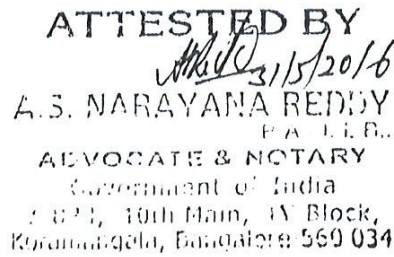 ATTESTED BY
31/5/2016
A.S. NARAYANA REDDY
B.A. L.L.B.,
ADVOCATE & NOTARY
Government of India
10th Main, IV Block,
Koramangala, Bangalore-560 034